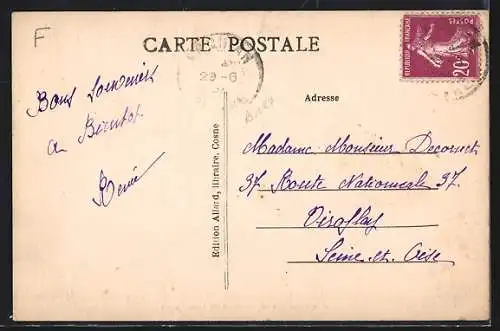 F
CARTE POSTALE
29-6
POSTES
REPUBLIQUE FRANCAISE
20 c
Adresse
Bons Souvenirs
a Bientot
Renée
Edition Allard, libraire, Cosne
Madame Monsieur
37 Route Nationale 37.
Viroflay
Seine-et-Oise